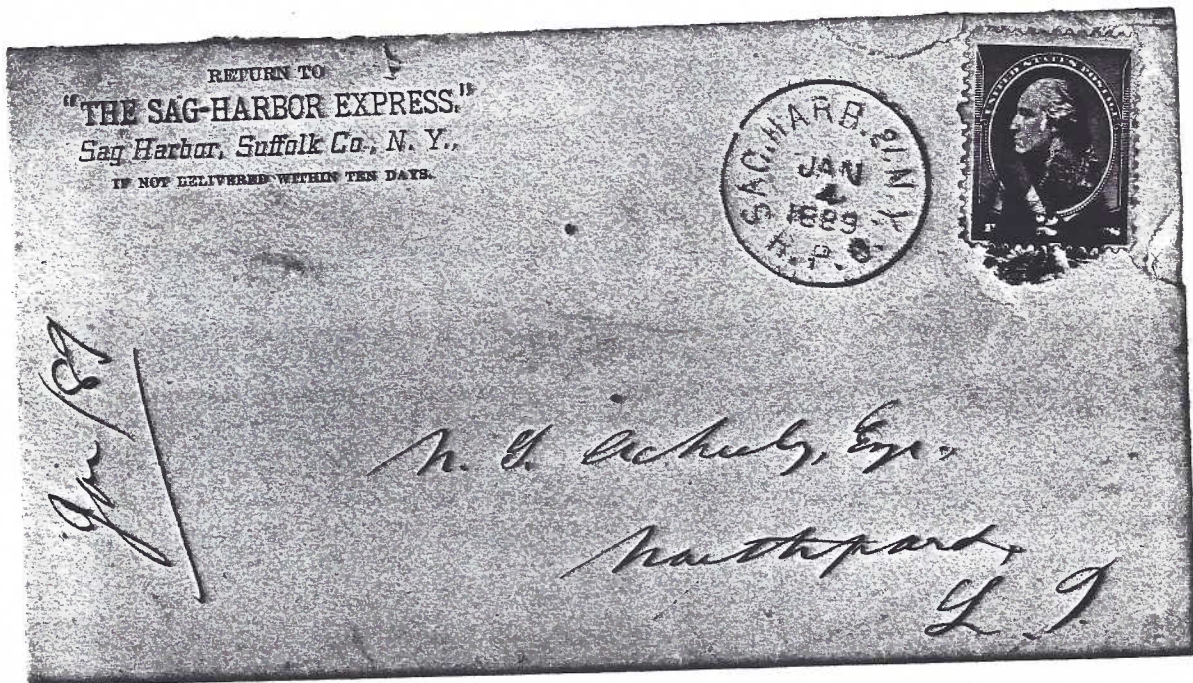 RETURN TO
"THE SAG-HARBOR EXPRESS,"
Sag Harbor, Suffolk Co., N. Y.,
IF NOT DELIVERED WITHIN TEN DAYS.
SAG. HARB. & L.N.Y.
JAN
4
1889
R. P. O.
UNITED STATES POSTAGE
2
Jan /89
N. S. Ackerly, Esq.
Northport,
L. I.